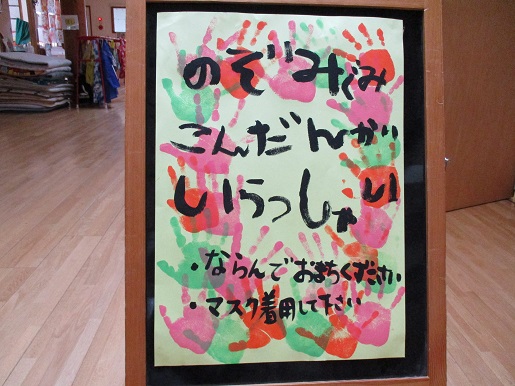 のぞみぐみ
こんだんかい
いらっしゃい
・ならんでおまちください
・マスク着用して下さい